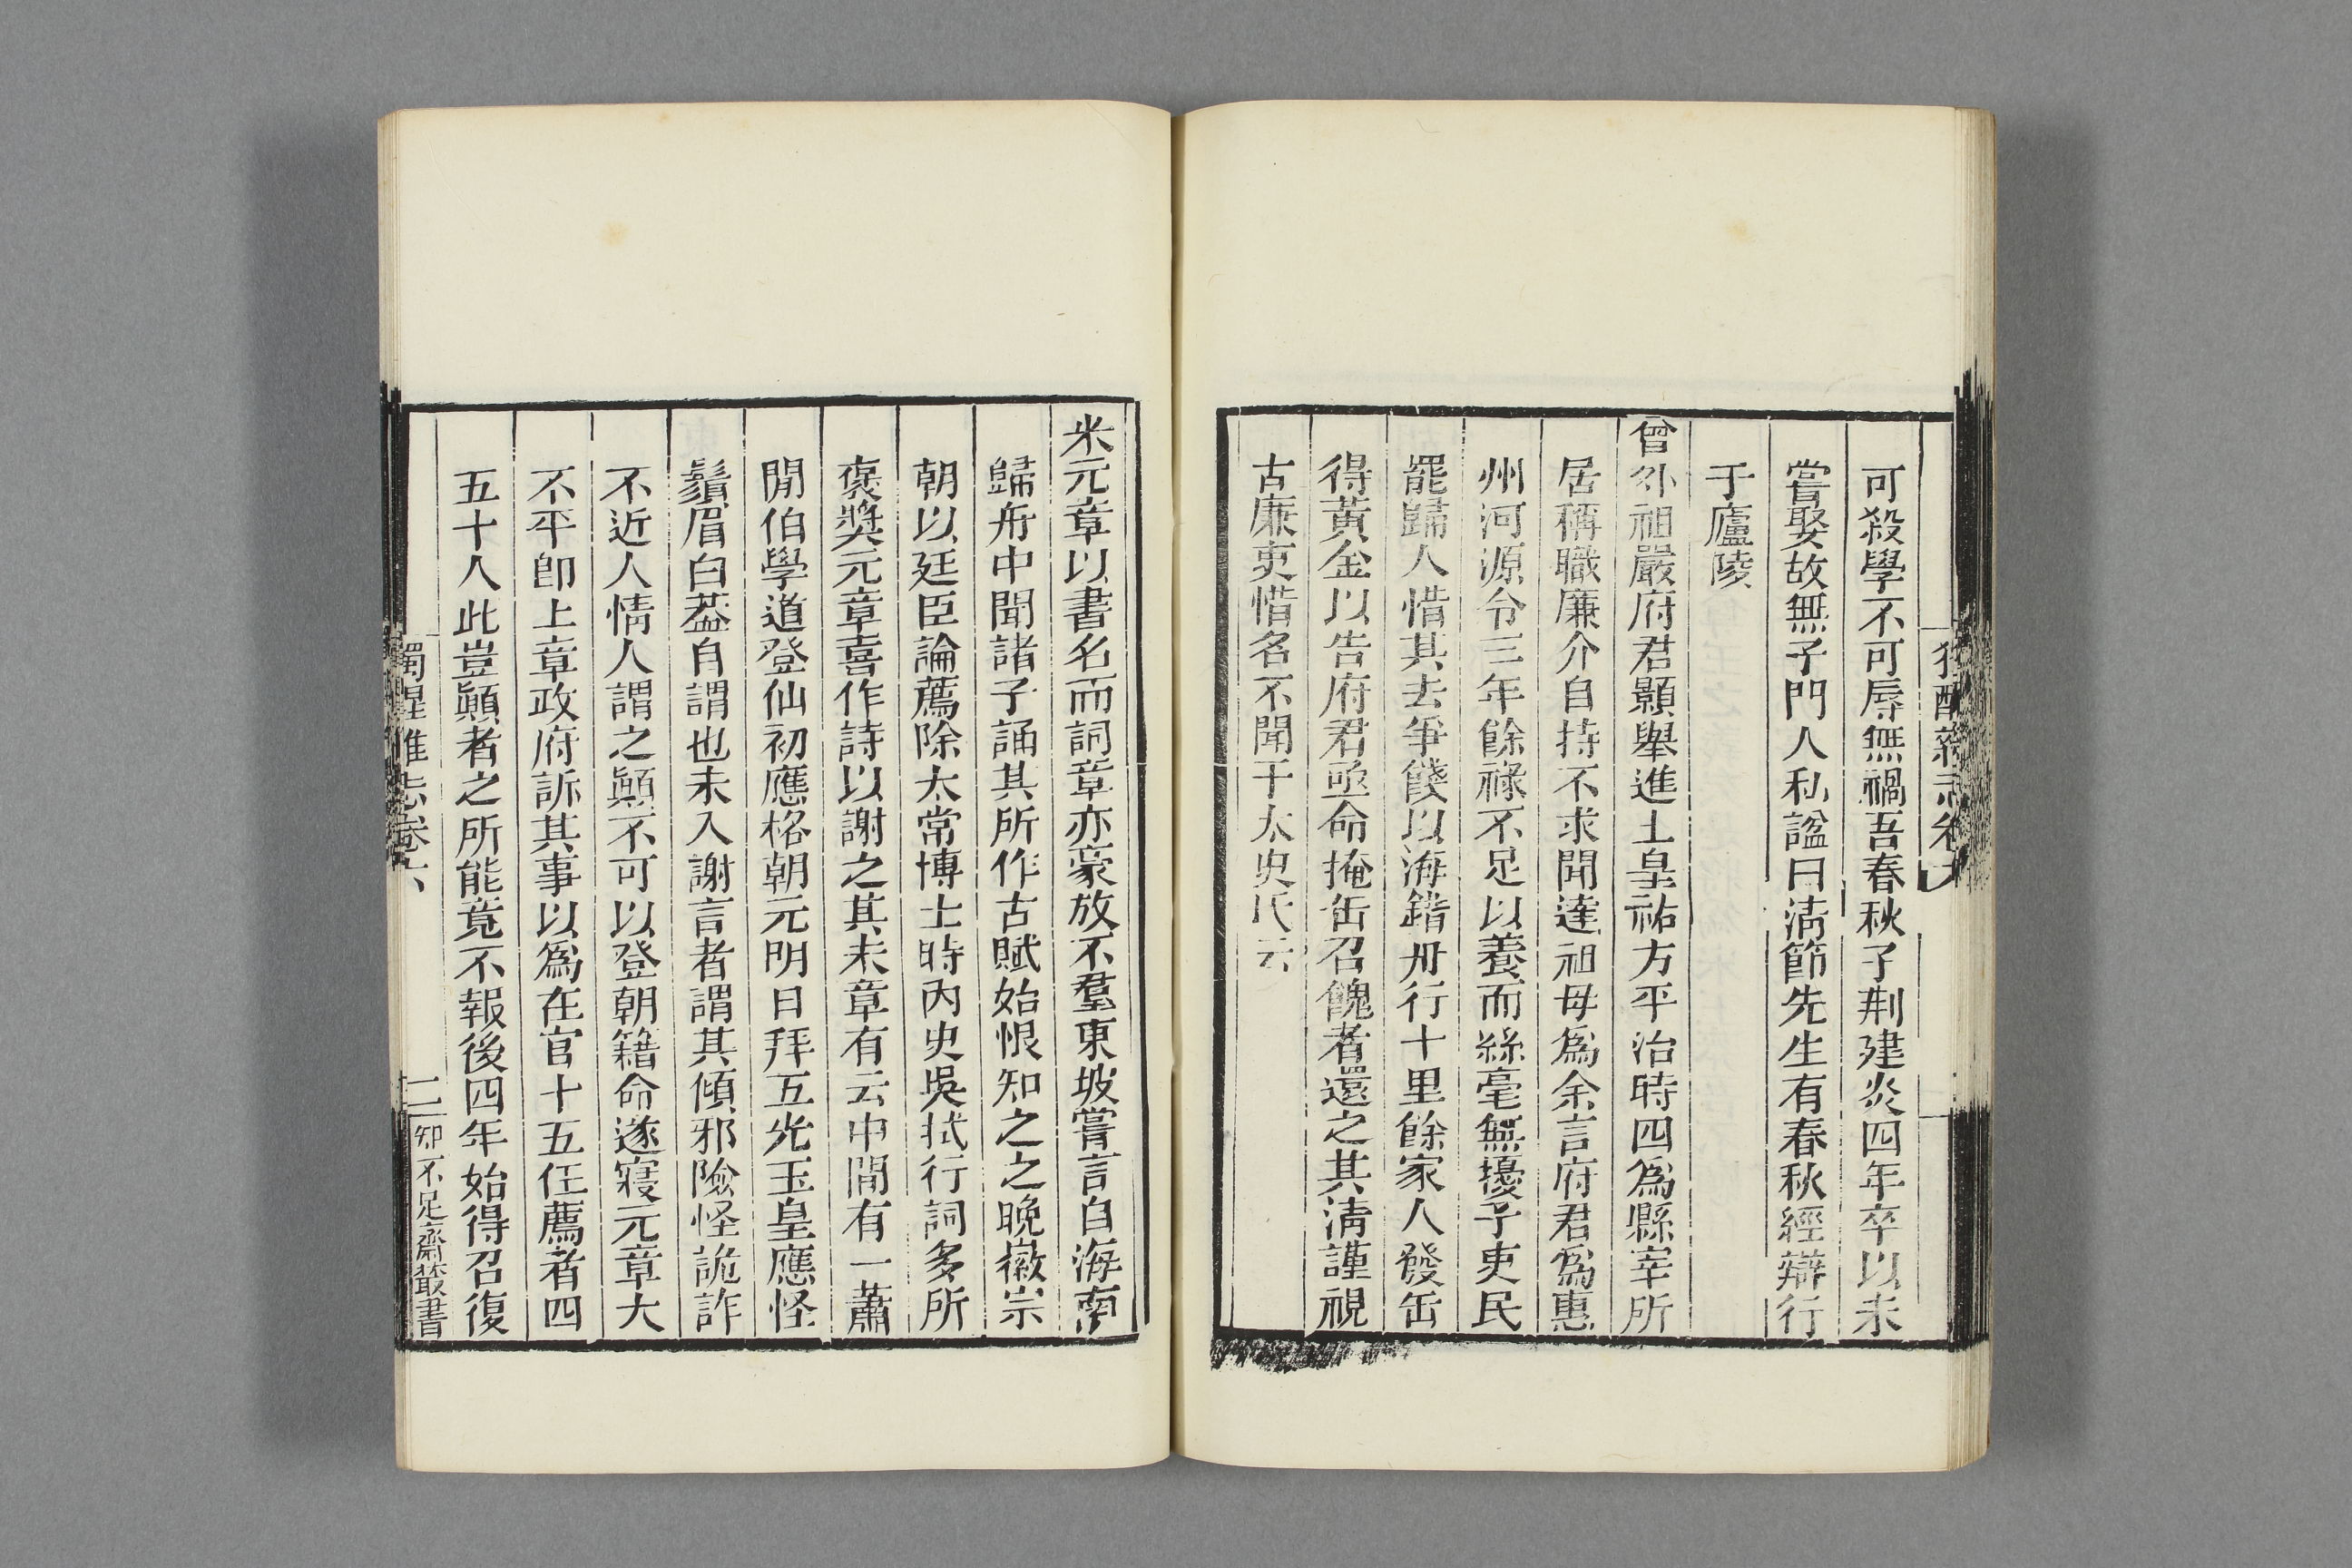 可殺學不可辱無禍吾春秋子荆建炎四年卒以未
嘗娶故無子門人私諡曰淸節先生有春秋經辯行
于廬陵
曾外祖嚴府君顯舉進士皇祐方平治時四爲縣宰所
居稱職廉介自持不求聞達祖母爲余言府君爲惠
州河源令三年餘祿不足以養而絲毫無擾子吏民
罷歸人惜其去爭餞以海錯舟行十里餘家人發缶
得黃金以告府君亟命掩缶召餽者還之其淸謹視
古廉吏惜名不聞于太史氏云
米元章以書名而詞章亦豪放不羣東坡嘗言自海南
歸舟中聞諸子誦其所作古賦始恨知之之晚徽宗
朝以廷臣論薦除太常博士時內史吳栻行詞多所
褒獎元章喜作詩以謝之其末章有云中閒有一蕭
閒伯學道登仙初應格朝元明日拜五光玉皇應怪
鬚眉白蓋自謂也未入謝言者謂其傾邪險怪詭詐
不近人情人謂之顚不可以登朝籍命遂寢元章大
不平卽上章政府訴其事以爲在官十五任薦者四
五十人此豈顚者之所能竟不報後四年始得召復
獨醒雜志卷六
二
知不足齋叢書